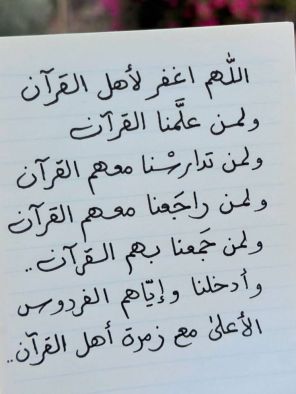 اللهم اغفر لأهل القرآن
ولمن علَّمنا القرآن
ولمن تدارسْنا معهم القرآن
ولمن راجَعنا معهم القرآن
ولمن جَمعنا بهم القرآن..
وأدخلنا وإيّاهم الفردوس
الأعلىٰ مع زمرة أهل القرآن..